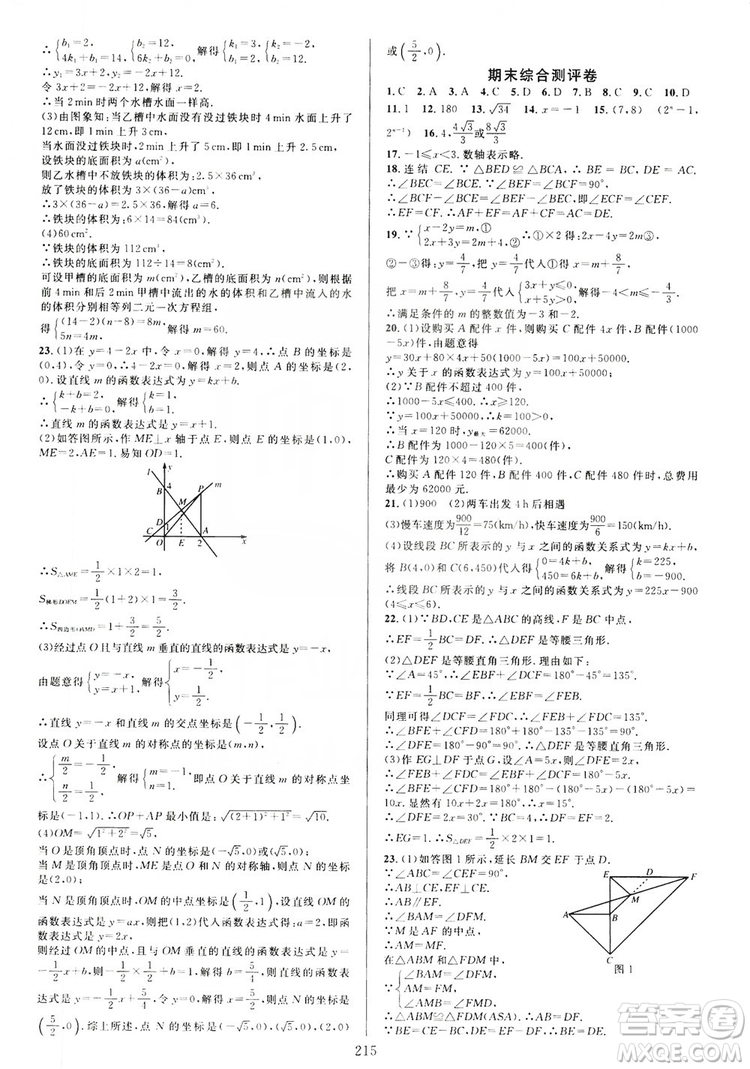 ∴{b₁=2, 4k₁+b₁=14, {b₂=12, 6k₂+b₂=0. 解得{k₁=3, b₁=2, {k₂=-2, b₂=12.
∴y₁=3x+2,y₂=-2x+12.
令 3x+2=-2x+12,解得 x=2.
∴当 2 min 时两个水槽水面一样高.
(3)由图象知:当乙水槽中没过铁块时 4 min 水面上升
12 cm,即 1 min 上升 3 cm.
当水面没过铁块时,2 min 上升了 5 cm,即 1 min 上升
设铁块的底面积为 a(cm²),
则乙水槽中不放铁块的体积为 2.5×36(cm³).
放了铁块的体积为 3×(36-a)(cm³),
∴3×(36-a)=2.5×36,解得 a=6.
∴铁块的体积为 6×14=84(cm³).
(4)60cm².
∵铁块的体积为 112 cm³,
∴铁块的底面积为 112÷14=8(cm²).
可设甲槽的底面积为 m(cm²),乙槽的底面积为 n(cm²),根据
前 4 min 和后 2 min 甲槽中流出的水的体积和乙槽中的水
的体积分别相等列二元一次方程组,
得{(14-2)(n-8)=8m, 5n=4m, 解得 m=60.
23.(1)在 y=4-2x 中,令 x=0,解得 y=4,∴点 B 的坐标是
(0,4).令 y=0,∴0=4-2x,解得 x=2,∴点 A 的坐标是(2,
0).设直线 m 的函数表达式为 y=kx+b.
∴{k+b=2, b=1. ∴{k=1, b=1.
∴直线 m 的函数表达式为 y=x+1.
(2)如答图所示,作 ME⊥x 轴于点 E,则点 E 的坐标是(1,0),
ME=2,AE=1.易知
l
x
4
P
M
D
B
C O E 2 A
∴S△AME=1/2×1×2=1.
S梯形DOEM=1/2(1+2)×1=3/2.
∴S四边形OAMD=1+3/2=5/2.
(3)经过点 O 且与直线 m 垂直的直线的函数表达式为 y=-x.
由题意得{y=-x, y=x+1, 解得{x=-1/2, y=1/2.
∴直线 y=-x 与直线 m 的交点坐标是(-1/2,1/2).
设点 O 关于直线 m 的对称点的坐标是(m,n),
则{m/2=-1/2, n/2=1/2, 解得{m=-1, n=1, ∴O 关于直线 m 的对称点坐
标是(-1,1).∴OP+AP 的最小值是:√((2+1)²+1²)=√10.
(4)OM=√(1²+2²)=√5,
当 O 是顶角顶点时,点 N 的坐标是(-√5,0)或(√5,0);
当 M 是顶角顶点时,M 是点 O 和 N 的对称轴,则点 N 的坐标是
(2,0);
当 N 是顶角顶点时,OM 的中点坐标是(1/2,1),设直线 OM 的
函数表达式是 y=ax,把(1,2)代入函数表达式得 a=2,则函数
表达式是 y=2x,
则经过 OM 的中点,且与 OM 垂直的直线的函数表达式是 y=
-1/2x+c,则 1=-1/2×1/2+c,解得 c=5/4,则直线的函数表
达式是 y=-1/2x+5/4,当 y=0 时,x=5/2,则点 N 的坐标是
(5/2,0).综上所述,点 N 的坐标是(-√5,0)或(√5,0)或(2,0)
或(5/2,0).
期末综合测评卷
1.C 2.A 3.A 4.C 5.D 6.B 7.C 8.C 9.C 10.D
11.1 12.180 13.√34 14.x=-1 15.(7,8) (2ⁿ-1,
2ⁿ⁻¹) 16.4√3/3或8√3/3
17.-1≤x<3.数轴表示略.
18.连结 CE.∵△BED≌△BCA,∴BE=BC.
∴∠BEC=∠BCE.∵∠BEF=∠BCF=90°,
∴∠FEC=∠FCE.
∴EF=CF.∴AF+EF=AF+CF=AC.
19.∵{x-2y=m,① 2x+3y=2m+4,② ∴①×2得:2x-4y=2m,③
②-③得:y=4/7,把 y=4/7代入①得:x=m+8/7,
把 x=m+8/7,y=4/7代入{3x+y≤0, x+5y>0 得-4<m≤-4/3.
∴满足条件的 m 的整数值为-3 和-2.
20.(1)设购买 A 配件 x 件,则购买 B 配件 4x 件,购买 C 配件(1000
-5x)件,由题意得
y=30x+80×4x+50(1000-5x)=100x+50000.
∴y 关于 x 的函数表达式为 y=100x+50000.
(2)∵B 配件不超过 400 件,
∴{1000-5x≤400, ∴x≥120.
∵y=100x+50000,100>0,∴y 随 x 的增大而增大.
∴当 x=120 时,y最大=62000.
∴B 配件为 1000-120×5=400(件).
C配件为 120×4=480(件).
∴购买 A 配件 120 件,B 配件 400 件,C 配件 480 件时,总费用
最少,最少为 62000 元.
21.(1)900 (2)两车出发 4 h 后相遇
(3)慢车速度为900/12=75(km/h),快车速度为900/6=150(km/h).
(4)设线段 BC 所表示的 y 与 x 之间的函数关系式为 y=kx+b,
将 B(4,0),C(6,450)代入得{0=4k+b, 450=6k+b 解得{k=225, b=-900.
∴线段 BC 所表示的 y 与 x 之间的函数关系式为 y=225x-900
(4≤x≤6).
22.(1)∵BD,CE 是△ABC 的高线,F 是 BC 中点,
∴EF=1/2BC,DF=1/2BC.∴EF=DF.∴△DEF 是等腰三角形.
(2)△DEF 是等腰直角三角形.理由如下:
∵∠A=45°,∴∠ABC+∠ACB=180°-45°=135°.
∵EF=1/2BC=BF,∴∠ABC=∠BEF.
同理可得∠DCF=∠CDF,∴∠DCF+∠BEF=135°.
∴∠BFE+∠CFD=180°+180°-135°-135°=90°.
∴∠DFE=90°.∴△DEF 是等腰直角三角形.
(3)作 EG⊥DF 于点 G,设∠EBF=∠BEF=4x,
则∠DCF=∠CDF=5x,∴∠BFE=180°-8x,∠DFC=180°-
10x.根据题意得 8x+10x=180°,解得 x=10°.
∴∠DFE=30°.又∵BC=4,∴EF=DF=1/2BC=2.
∴EG=1.∴S△DEF=1/2×2×1=1.
23.(1)如答图 1,延长 BM 交 EF 于点 D.
∵∠ABC=∠CEF=90°,
∴AB⊥CE,EF⊥CE.
∴AB∥EF.
∴∠BAM=∠DFM.
∵M 是 AF 的中点,
∴AM=MF.
在△ABM 和△FDM 中,
∵{∠BAM=∠DFM, AM=FM, ∠AMB=∠FMD,
∴△ABM≌△FDM(ASA).∴AB=DF.
∵BE=CE-BC,DE=EF-DF,∴BE=DE.
E D F
M
A B
C
图 1
215
答案圈
MXQE.COM